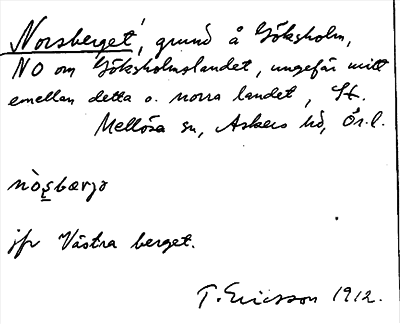 Norsberget, grund å Göksholm,
NO om Göksholmslandet, ungefär mitt
emellan detta o. norra landet, St.
Mellösa sn, Askers hd, Ör. l.
nò̀s̨bærjə
jfr Västra berget.
T. Ericsson 1912.